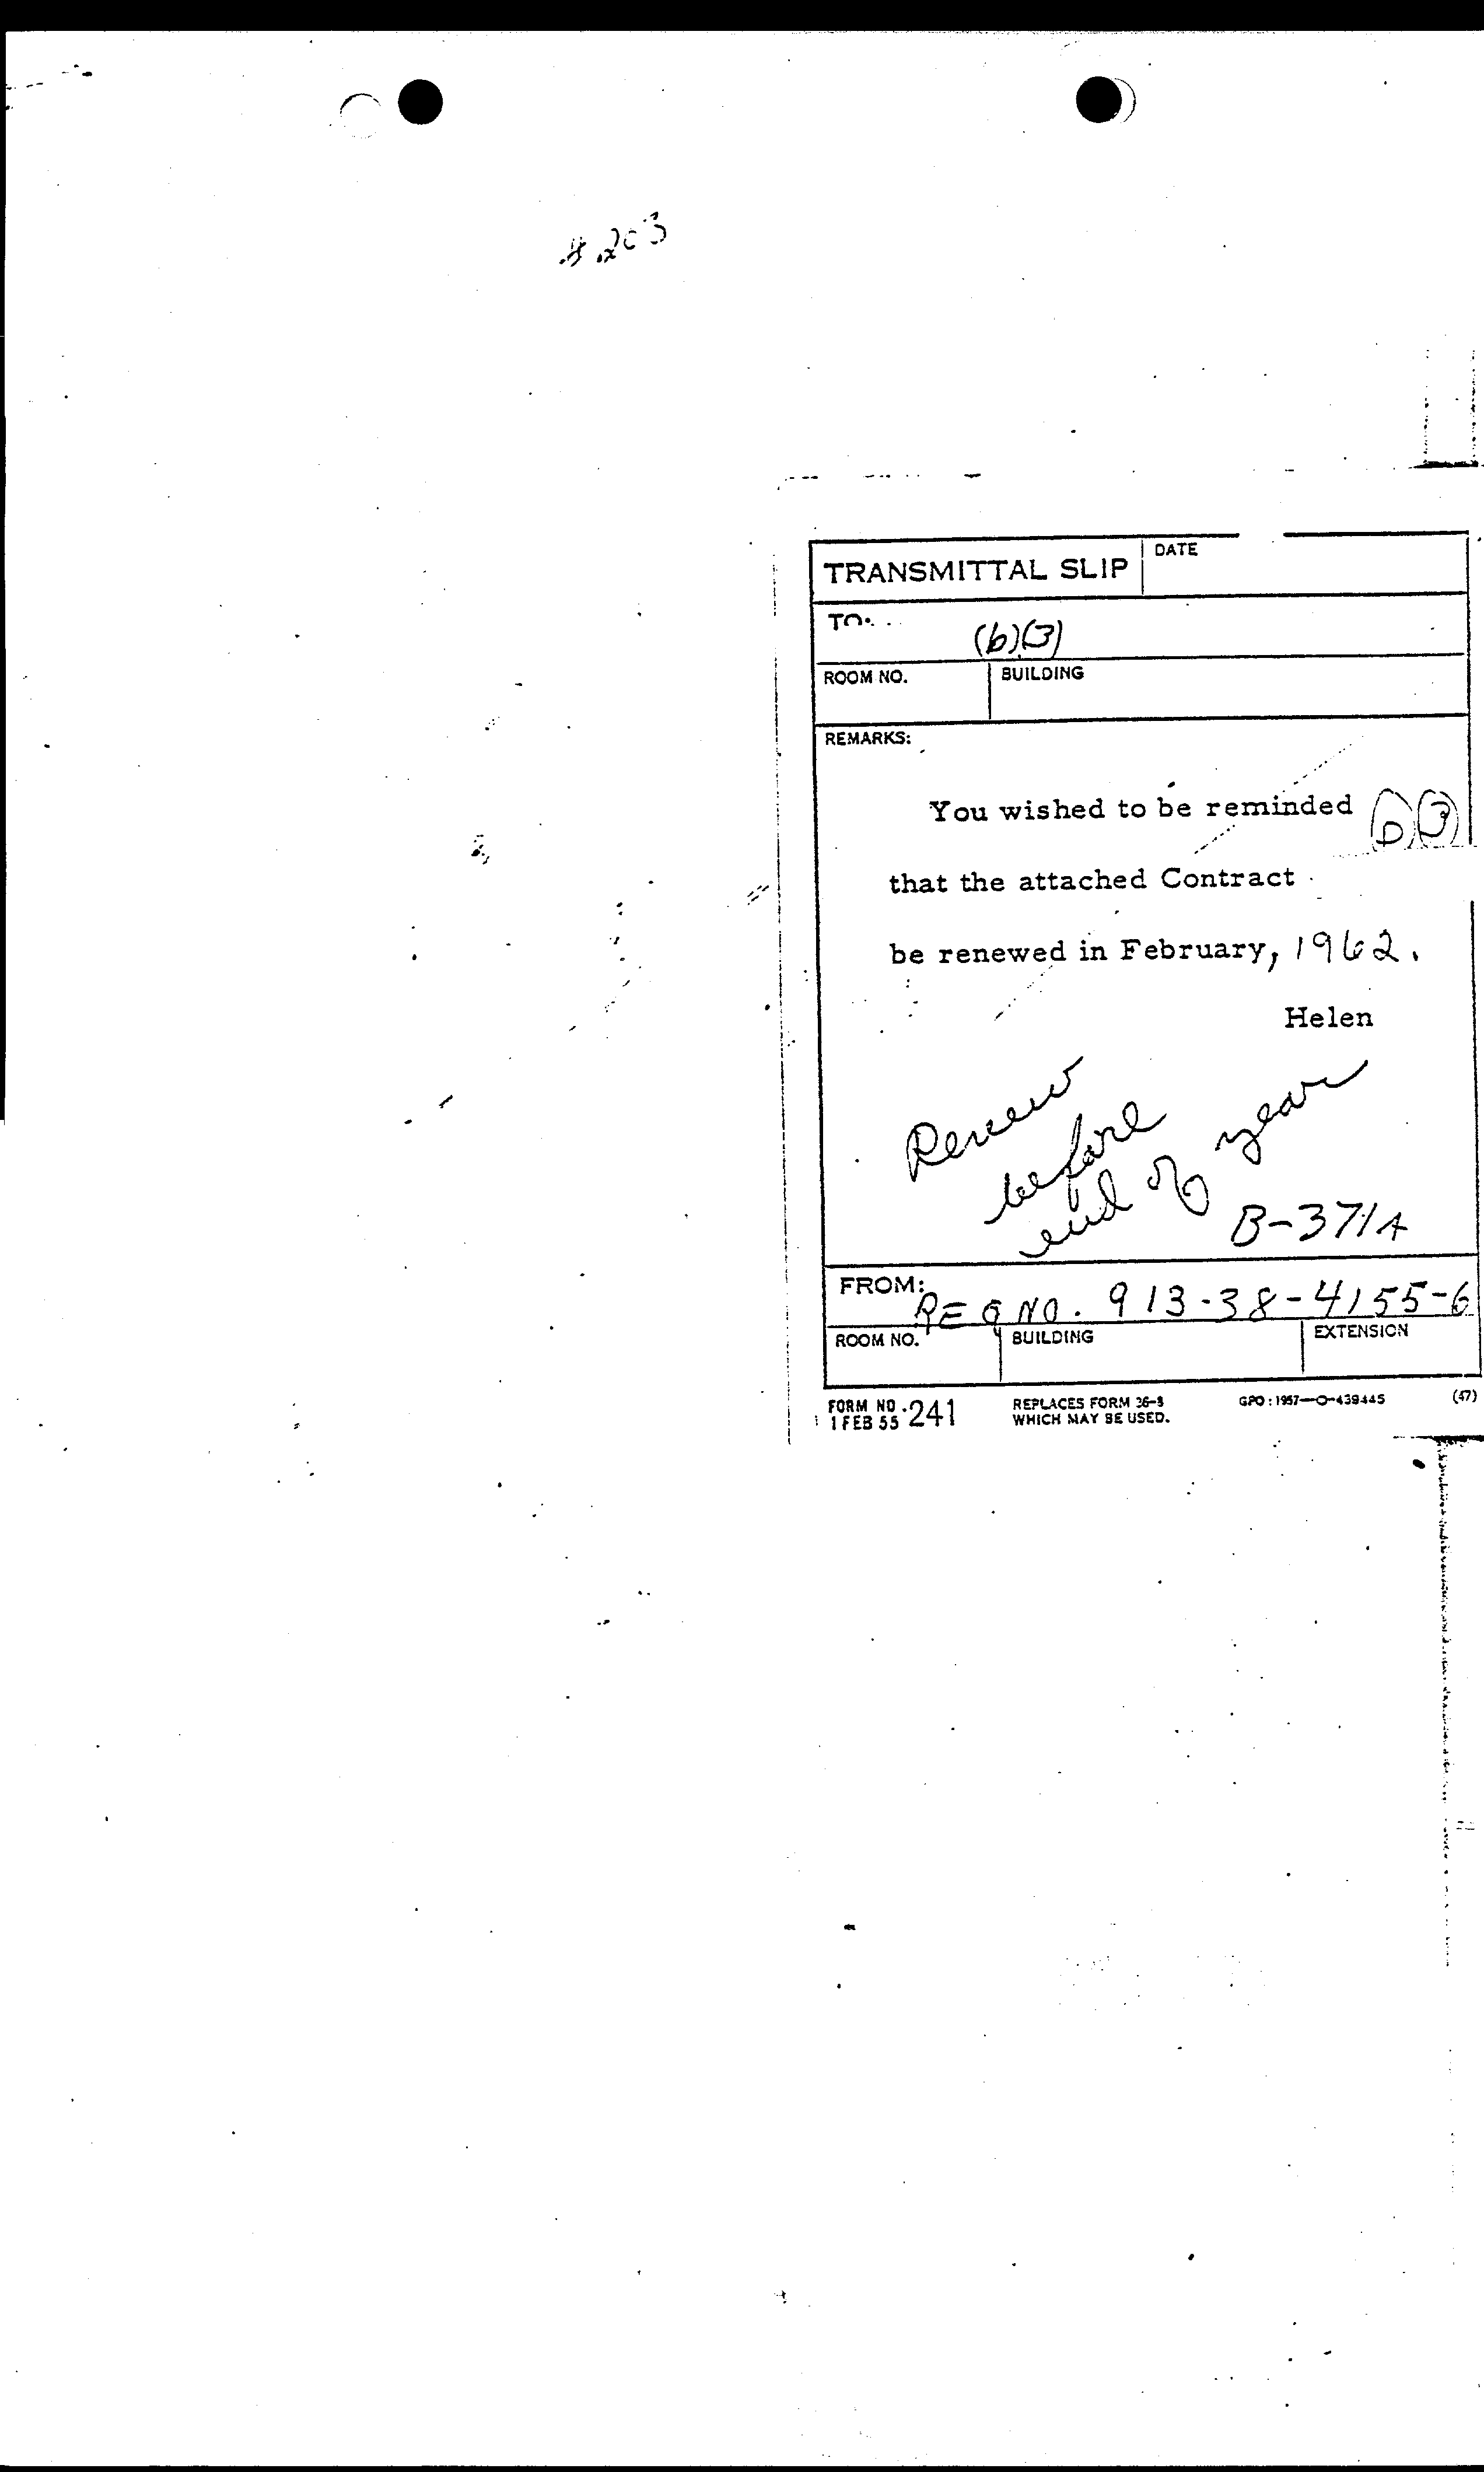 TRANSMITTAL SLIP
DATE
TO:
(b)(3)
ROOM NO.
BUILDING
REMARKS:
You wished to be reminded
(b)(3)
that the attached Contract
be renewed in February, 1962.
Helen
Renew
before
end of year
B-371A
FROM:
REQ NO. 913-38-4155-6
ROOM NO.
BUILDING
EXTENSION
FORM NO. 241
1 FEB 55
REPLACES FORM 36-8
WHICH MAY BE USED.
GPO : 1957—O-439445
(47)